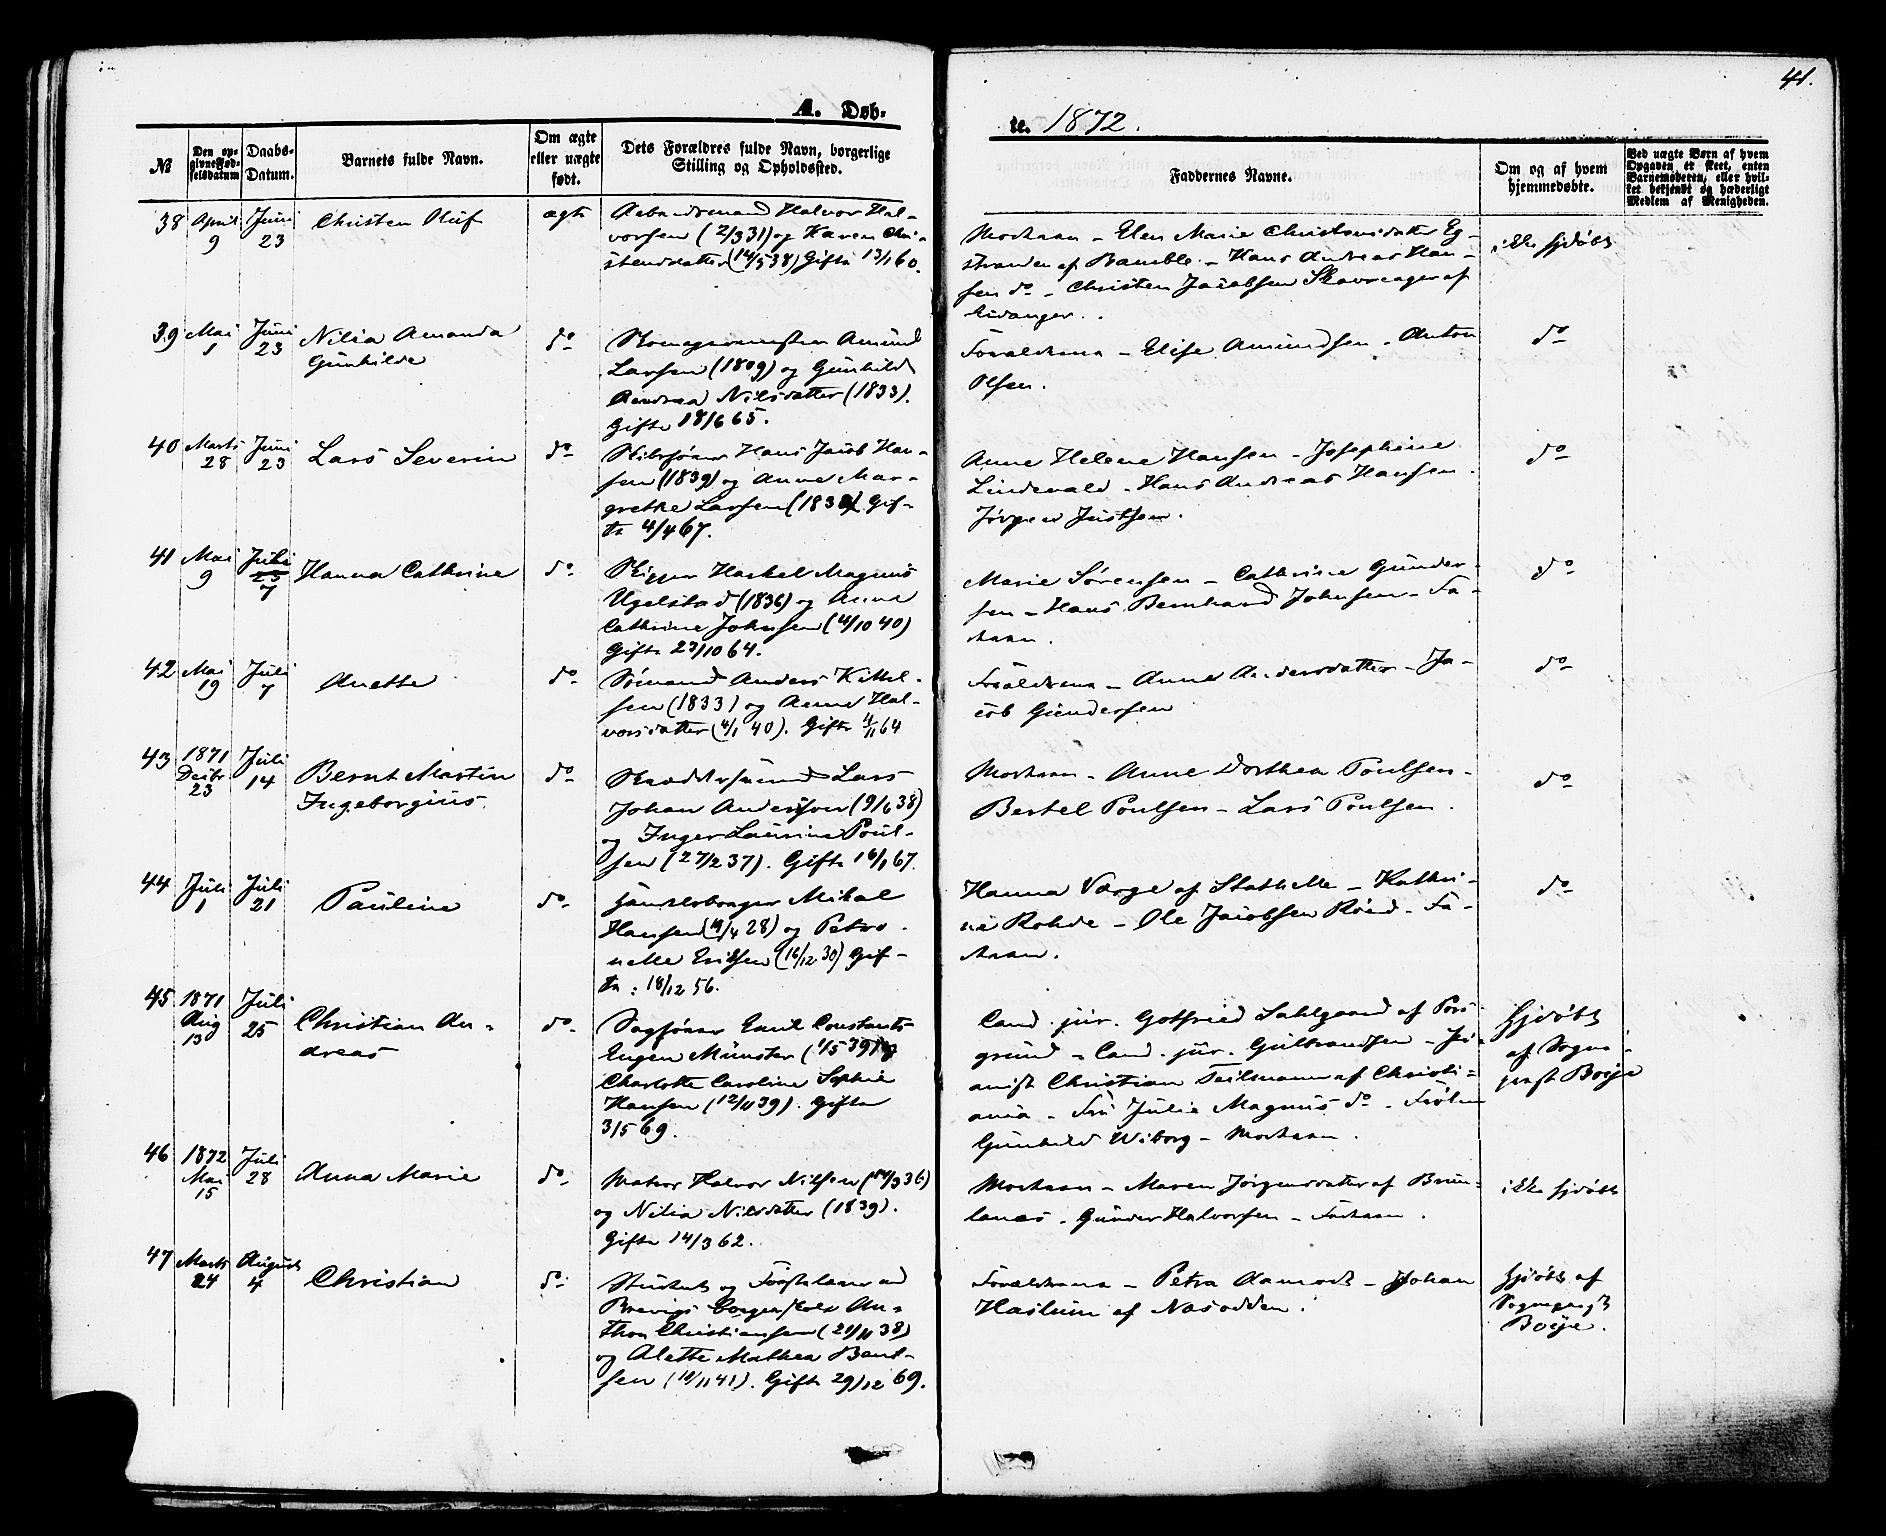 41.
A. Døb-
te. 1872.
№
Den op-
givne Fød-
selsdatum
Daabs-
Datum.
Barnets fulde Navn.
Om ægte
eller uægte
født.
Dets Forældres fulde Navn, borgerlige
Stilling og Opholdssted.
Faddernes Navne.
Om og af hvem
hjemmedøbte.
Ved uægte Børn af hvem
Opgaven er skeet, enten
Barnemoderen, eller hvil-
ket bekjendt og hæderligt
Medlem af Menigheden.
38 April 9
Juni 23
Christen Oluf
ægte
Arbeidsmand Halvor Hal-
vorsen (2/3 31) og Karen Chri-
stensdatter (14/5 38) Gifte 13/1 60.
Moderen - Elen Marie Christensdatter Eg-
stranden af Bamble - Hans Andreas Han-
sen do - Christen Jacobsen Skavreager af
Eidanger.
ikke hjdøbt
39 Mai 1
Juni 23
Nilia Amanda
Gunhilde
do
Skomagermester Amund
Larsen (1809) og Gunhild
Andrea Nilsdatter (1833).
Gifte 18/6 65.
Forældrene - Elise Amundsen - Anton
Olsen.
do
40 Marts 28
Juni 23
Lars Severin
do
Skibsfører Hans Jacob Han-
sen (1839) og Anne Mar-
grethe Larsen Gif-
te 4/4 67.
Anne Helene Hansen - Josephine
Lindevald - Hans Andreas Hansen.
Jørgen Justsen.
do
41 Mai 9
Juli 7
Hanna Cathrine
do
Skipper Haskel Magnus
Ugelstad (1836) og Anna
Cathrine Johnsen (4/10 40)
Gifte 23/10 64.
Marie Sørensen - Cathrine Gunder-
sen - Hans Bernhard Johnsen - Fa-
deren.
do
42 Mai 19
Juli 7
Anette
do
Sømand Anders Kittel-
sen (1833) og Anne Hal-
vorsdatter (4/1 40). Gifte 4/11 64
Forældrene - Anne Andersdatter - Ja-
cob Gundersen
do
43 1871 Decbr 23
Juli 14
Bernt Martin
Ingeborgius.
do
Skræddersvend Lars
Johan Andersson (9/6 38)
og Inger Laurine Poul-
sen (27/2 37). Gifte 16/1 67.
Moderen - Anne Dorthea Poulsen -
Bertel Poulsen - Lars Poulsen.
do
44 Juli 1
Juli 21
Pauline
do
Hansen og Petro-
nelle Eriksen (16/12 30) Gif-
te: 18/12 56.
Hanna Værge af Stathelle - Kathri-
ne Rohde - Ole Jacobsen Røed - Fa-
deren.
do
45 1871 Aug 13
Juli 25
Christian An-
dreas
do
Sagfører Emil Constants
Eugen Münster (1/5 39) og
Charlotte Caroline Sophie
Hansen (12/11 39). Gifte
3/5 69.
Cand. jur. Gotfried Sahlgaard af Pors-
grund - Cand. jur. Gulbrandsen - Pi-
anist Christian Teilmann af Christi-
ania - Fru Julie Magnus do - Frøken
Gunhild Wiborg - Moderen.
Hjdøbt
af Sogne-
præst Boeje
46 1872 Mai 15
Juli 28
Anna Marie
do
Matros Halvor Nilsen
og Nilia Nilsdatter (1839).
Gifte 14/3 62.
Moderen - Maren Jørgensdatter af Brun-
lanes - Gunder Halvorsen - Faderen.
ikke hjdøbt
47 Marts 24
August 4
Christian
do
Student og Førstelærer ved
Brevigs Borgerskole An-
thon Christiansen (21/11 38)
og Alette Mathea Bent-
sen (10/11 41). Gifte 29/12 69.
Forældrene - Petra Aamodt - Johan
Haslum af Næsodden.
hjdøbt af
Sognepræst
Boeje.